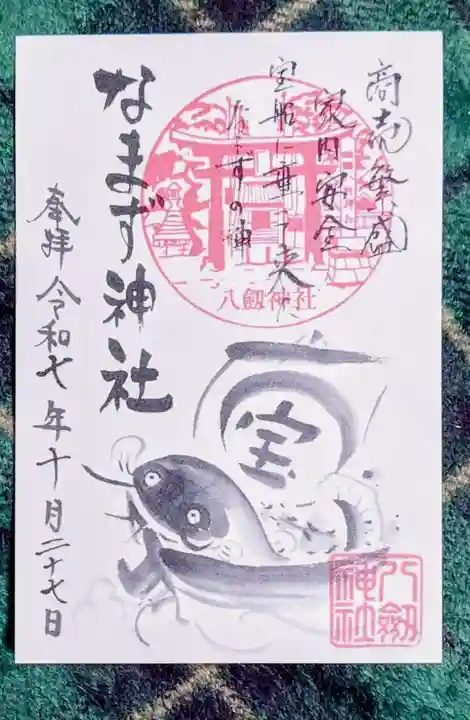 商売繁盛
家内安全
宝船に乗って来た
なまずの神
八劔神社
なまず神社
奉拝 令和七年十月二十七日
宝
八劔
神社